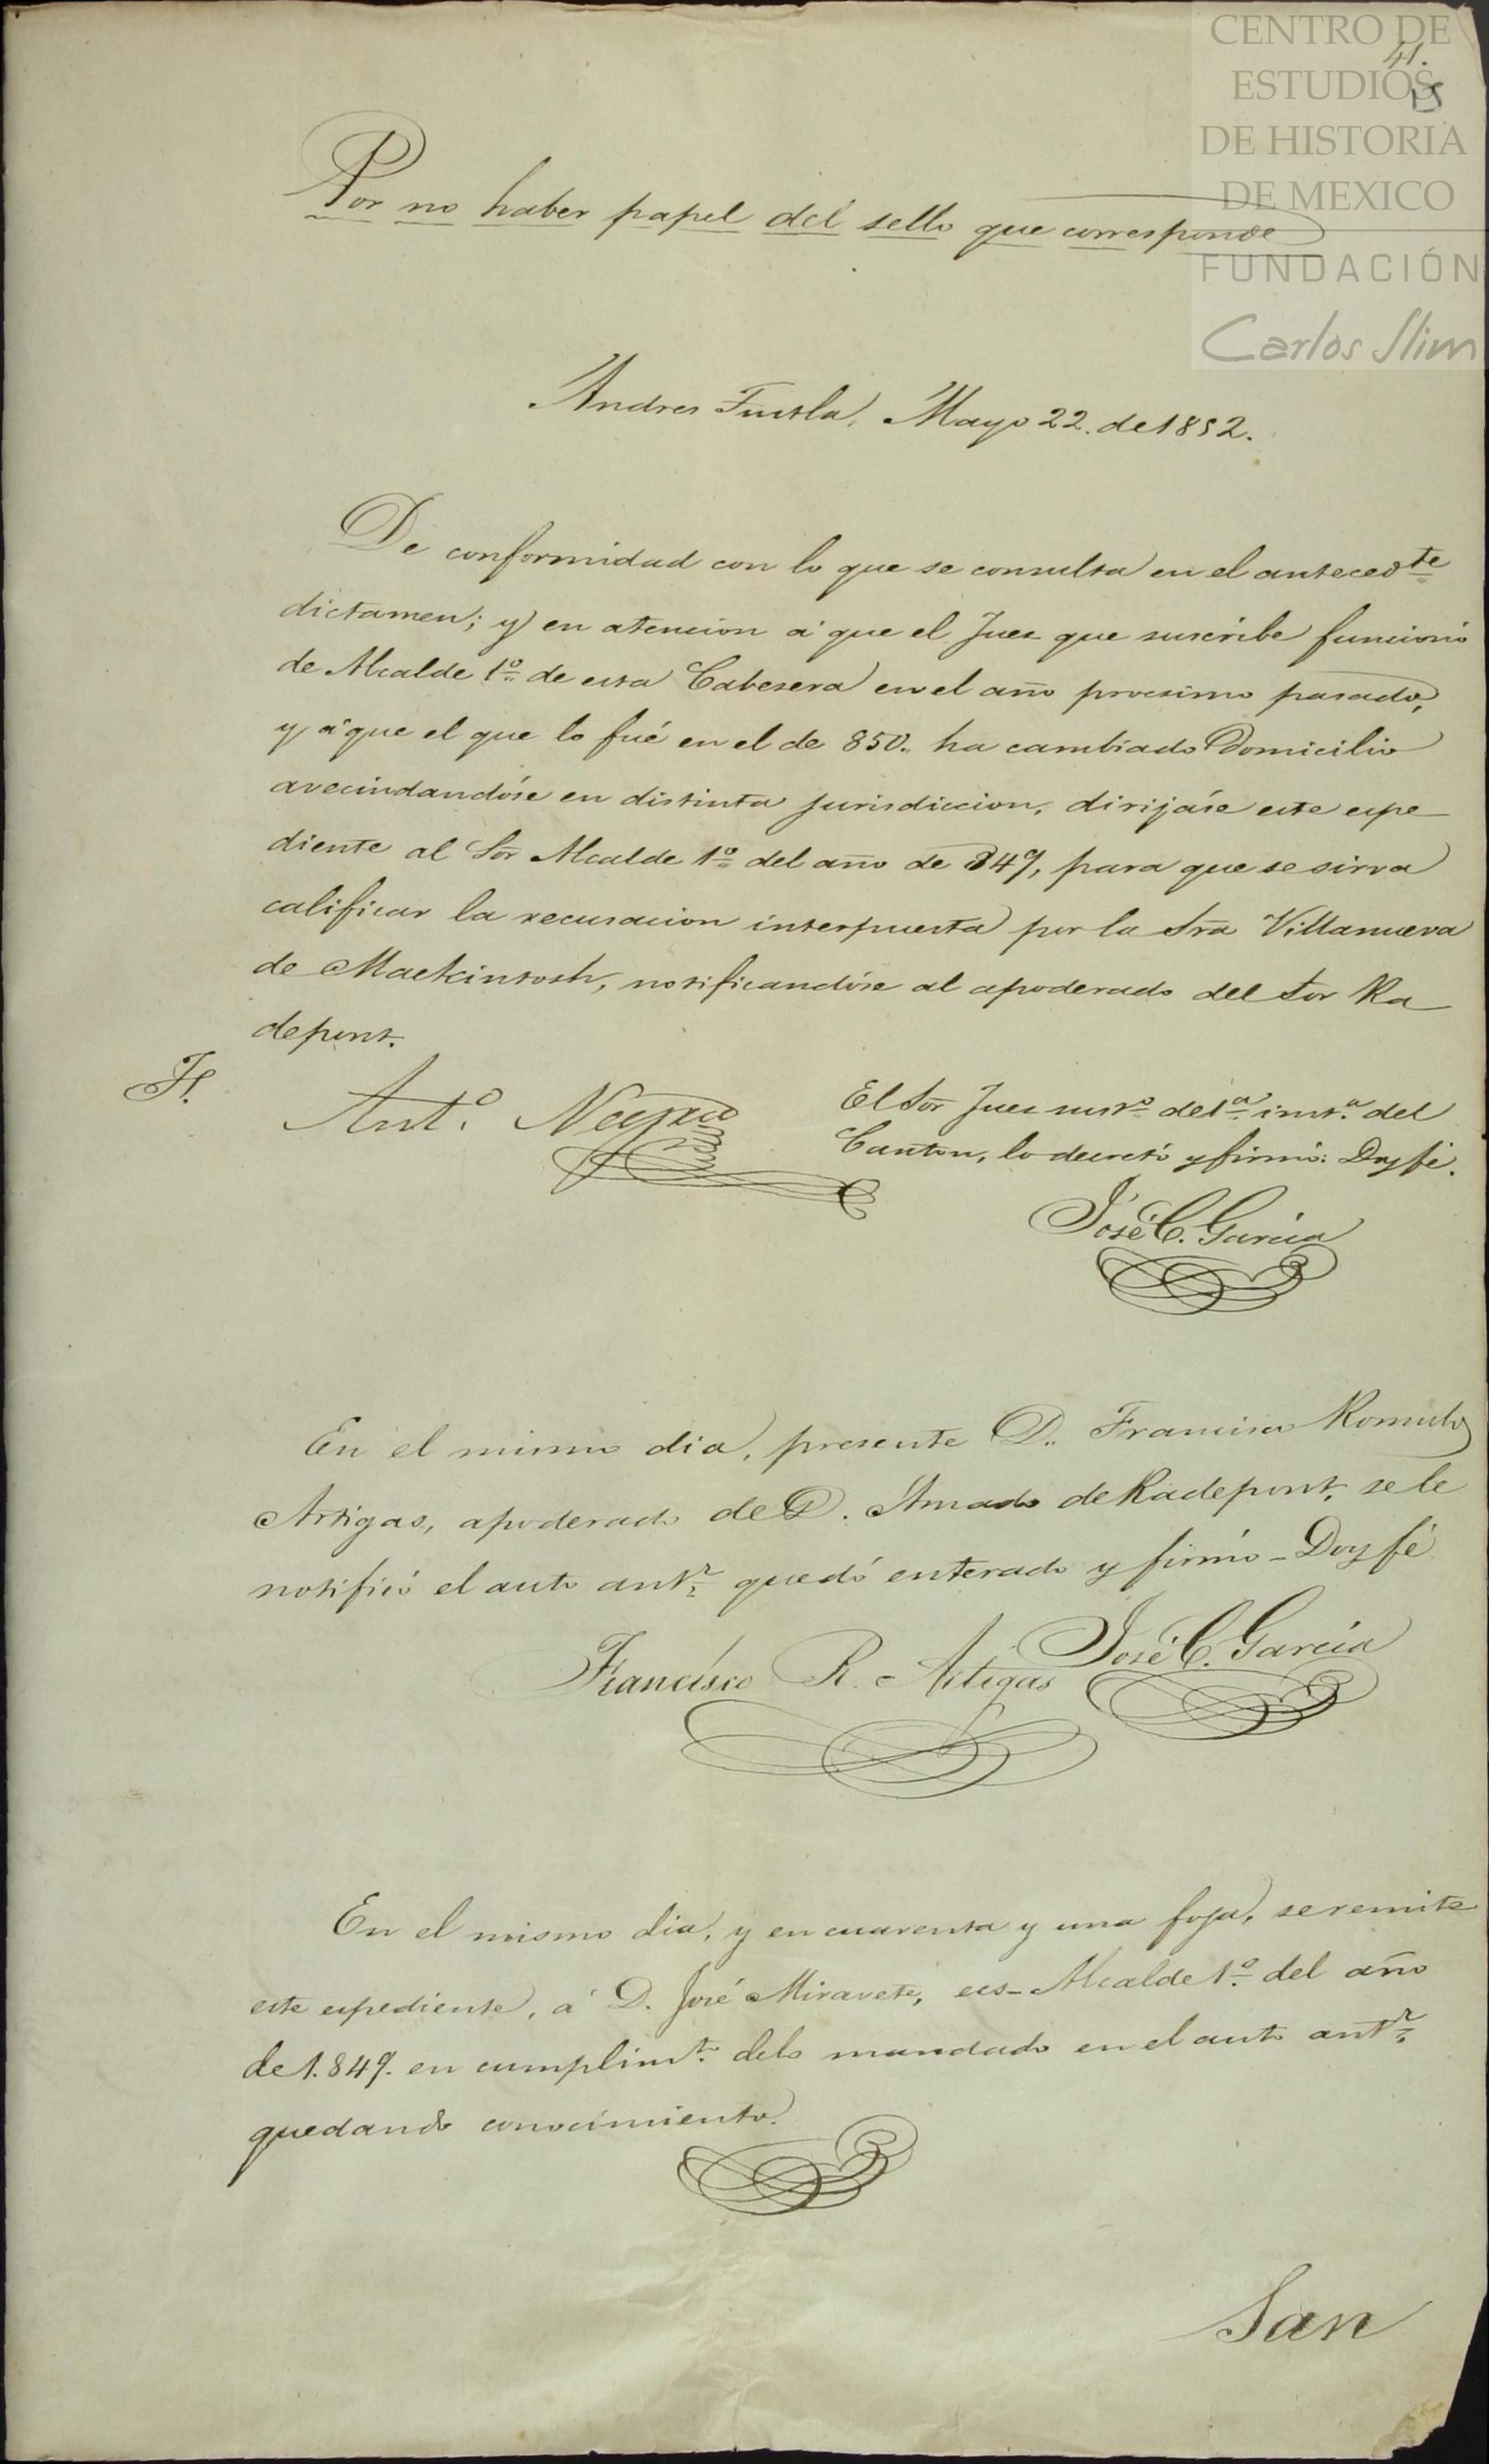 CENTRO DE
ESTUDIOS
DE HISTORIA
DE MEXICO
FUNDACIÓN
Carlos Slim
41.
15
Por no haber papel del sello que corresponde
Andres Tuxtla, Mayo 22. de 1852.
De conformidad con lo que se consulta en el antecedte
dictamen; y en atencion á que el Juez que suscribe funcionó
de Alcalde 1º de esta Cabesera en el año procsimo pasado,
y á que el que lo fué en el de 850. ha cambiado Domicilio
avecindandóse en distinta jurisdiccion, dirijáse este espe
diente al Sor Alcalde 1º del año de 849, para que se sirva
calificar la recusacion interpuesta por la Sra Villanueva
de Mackintosh, notificandóse al apoderado del Sor Ra
depont.
Ant.º
El Sor Juez sustº de 1ª instª del
Canton, lo decretó y firmó: Doy fé.
José C. Garcia
En el mismo dia, presente D. Francisco Romulo
Artigas, apoderado de D. Amado de Radepont, se le
notificó el auto antr quedó enterado y firmó - Doy fé
Francisco R. Artigas José C. Garcia
En el mismo dia, y en cuarenta y una foja, se remite
este espediente, á D. José Miravete, ecs-Alcalde 1º del año
de 1.849. en cumplimtº delo mandado en el auto antr
quedando conocimiento.
San